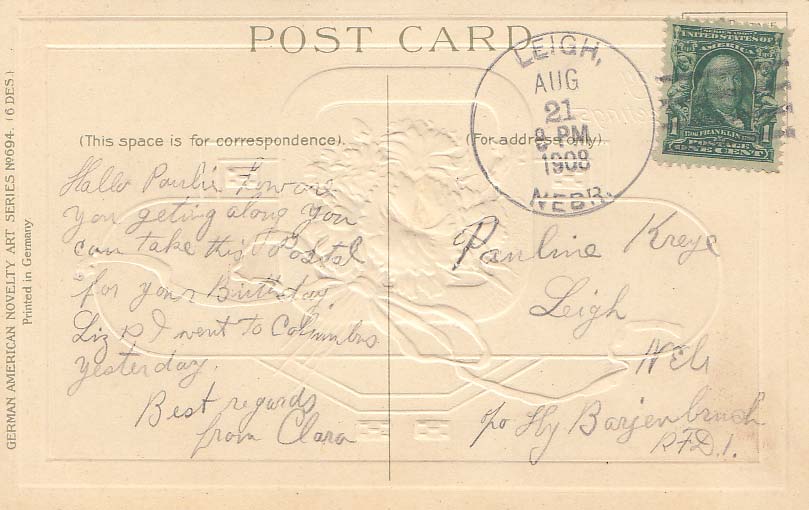 POST CARD
GERMAN AMERICAN NOVELTY ART SERIES Nº694. (6 DES.)
Printed in Germany
(This space is for correspondence).
Hallo Paulie How are
you geting along You
can take this Postal
for your Birthday.
Liz & I went to Columbus
yesterday.
Best regards
from Clara
(For address only).
LEIGH,
AUG
21
8 PM
1908
NEBR.
SERIES 1902
UNITED STATES OF
AMERICA
1 FRANKLIN 1
POSTAGE
ONE CENT
Pauline Kreye
Leigh
Neb
c/o Hy Barjenbruch
RFD.1.